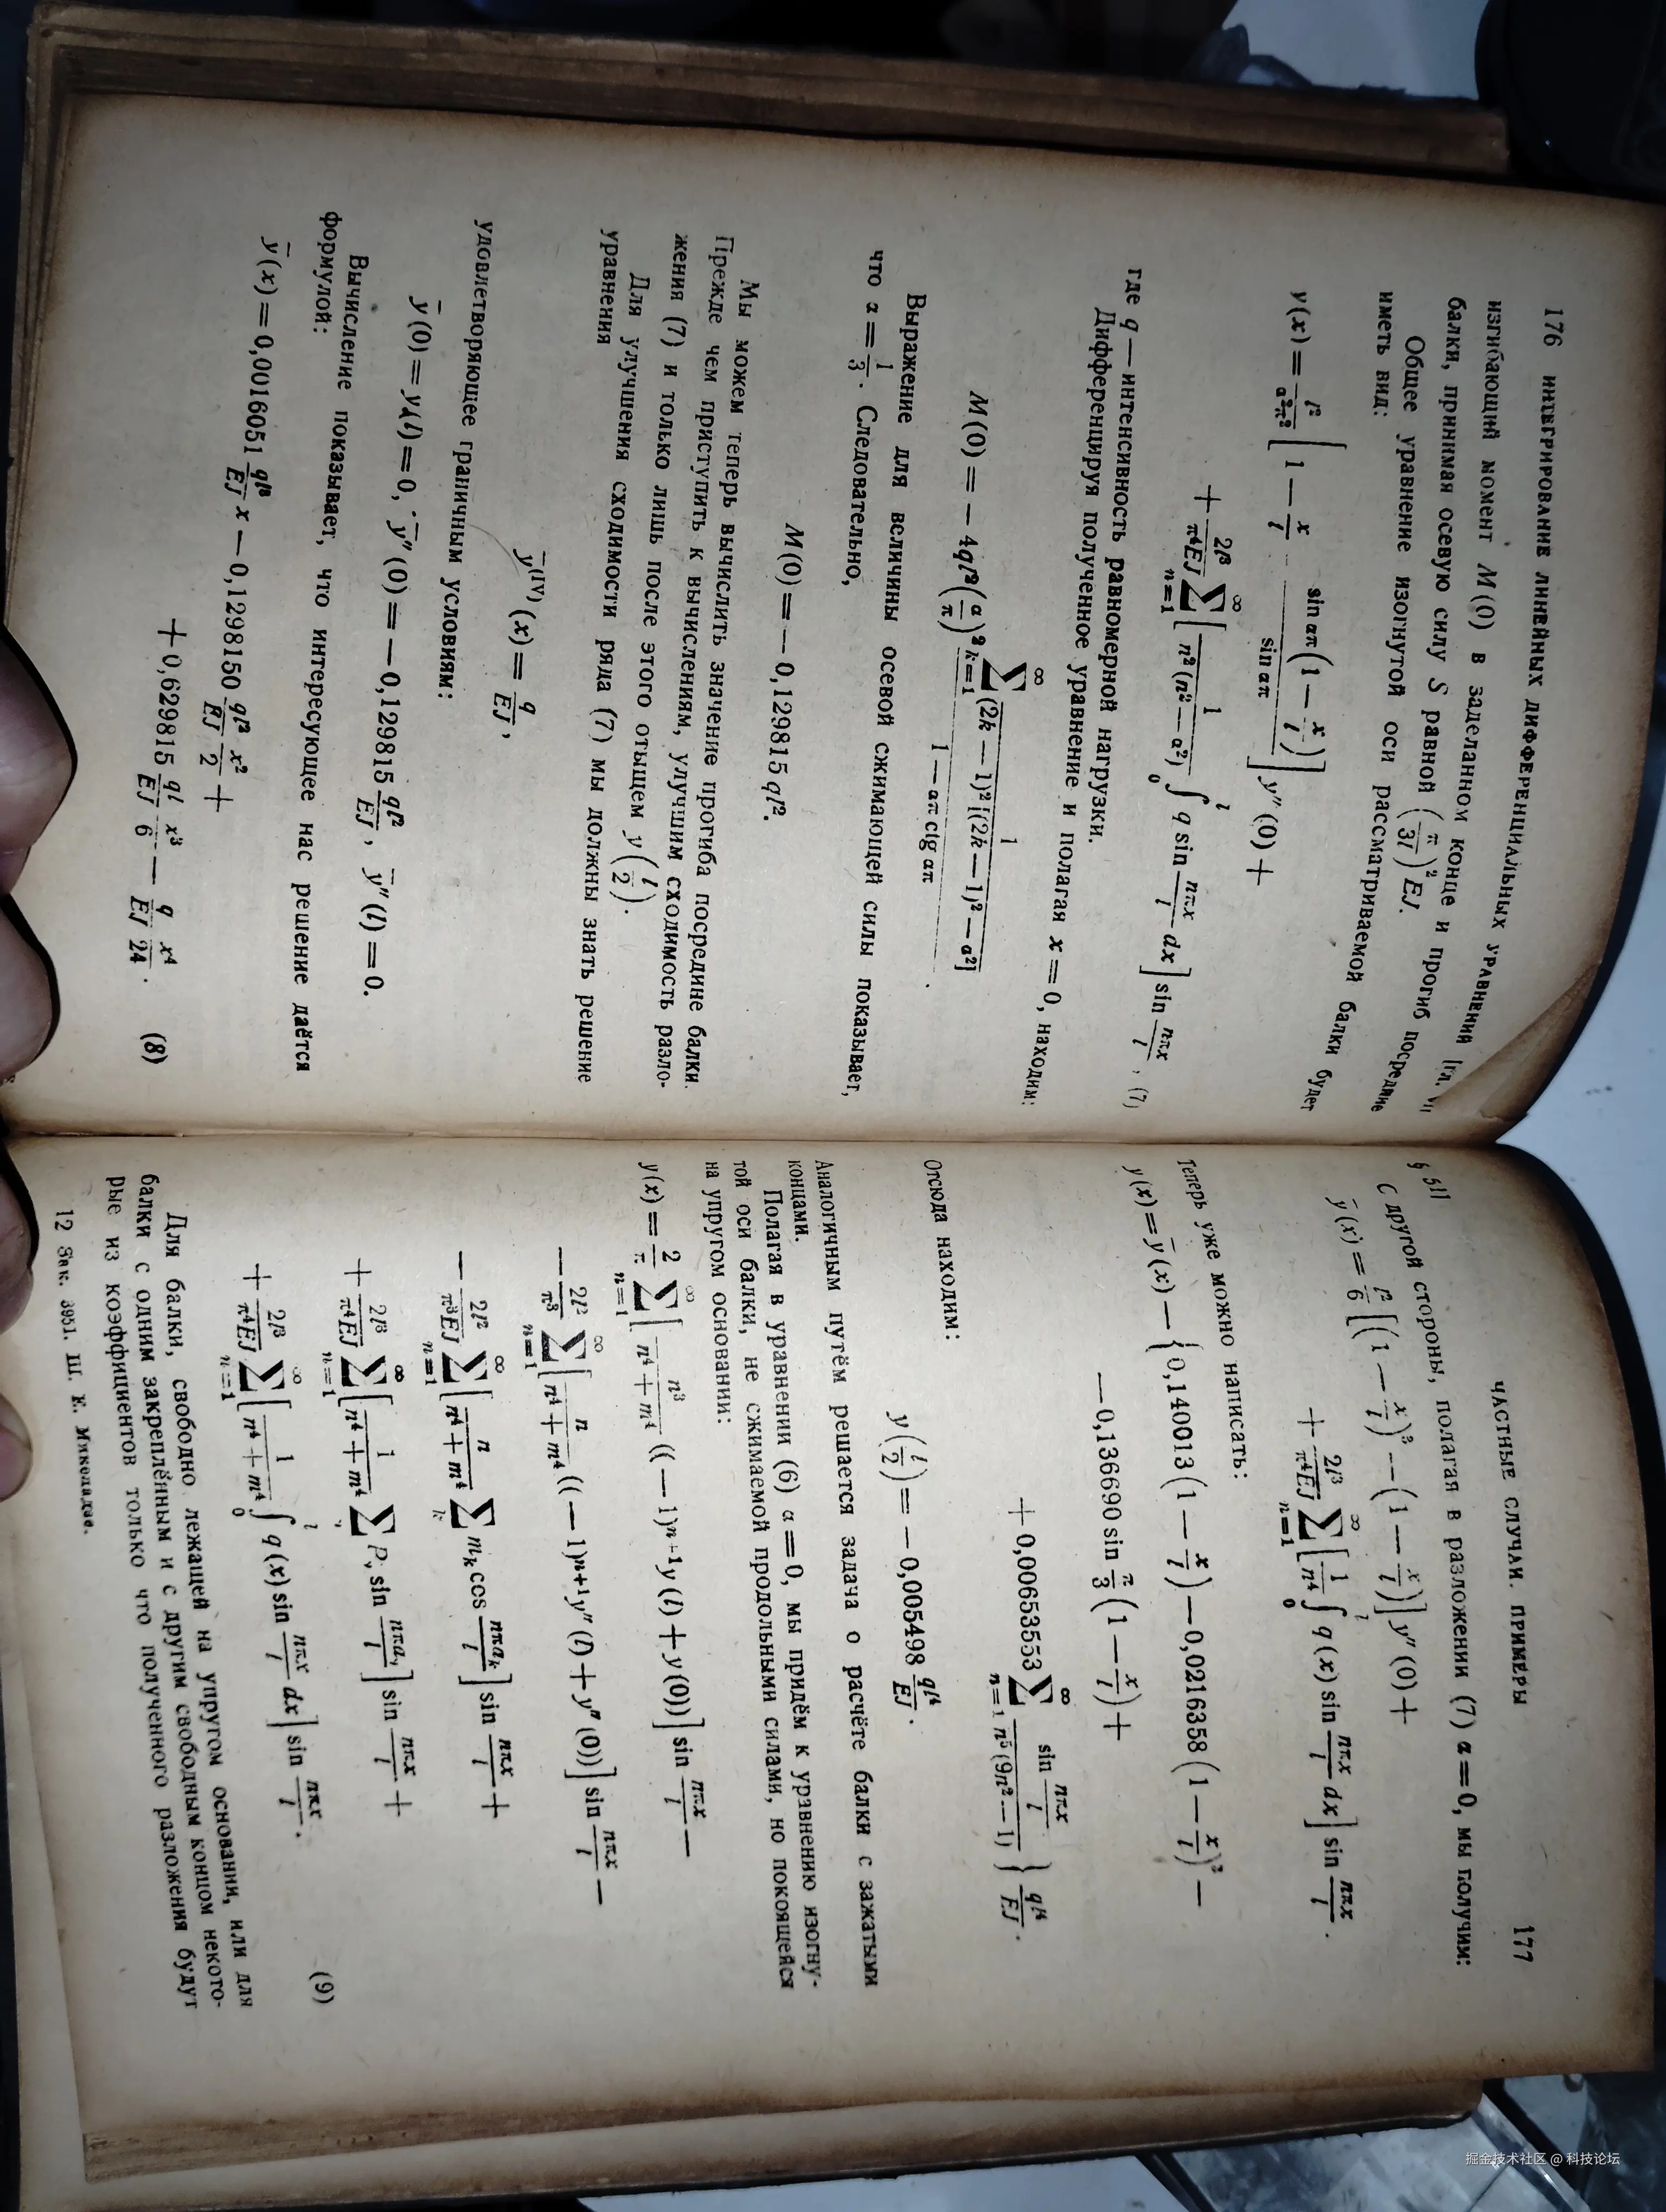 176 ИНТЕГРИРОВАНИЕ ЛИНЕЙНЫХ ДИФФЕРЕНЦИАЛЬНЫХ УРАВНЕНИЙ [ГЛ. VI
изгибающий момент M(0) в заделанном конце и прогиб посредине
балки, принимая осевую силу S равной (π/3l)² EJ.
Общее уравнение изогнутой оси рассматриваемой балки будет
иметь вид:
y(x) = l²/(α²π²) [1 − x/l − sin απ(1 − x/l)/sin απ] y″(0) +
+ 2l³/(π⁴EJ) ∑_{n=1}^{∞} [1/(n²(n² − α²)) ∫₀ˡ q sin nπx/l dx] sin nπx/l, (7)
где q — интенсивность равномерной нагрузки.
Дифференцируя полученное уравнение и полагая x = 0, находим:
M(0) = − 4ql² (α/π)² ∑_{k=1}^{∞} 1/((2k − 1)² [(2k − 1)² − α²]) / (1 − απ ctg απ).
Выражение для величины осевой сжимающей силы показывает,
что α = 1/3. Следовательно,
M(0) = − 0,129815 ql².
Мы можем теперь вычислить значение прогиба посредине балки.
Прежде чем приступить к вычислениям, улучшим сходимость разло-
жения (7) и только лишь после этого отыщем y(l/2).
Для улучшения сходимости ряда (7) мы должны знать решение
уравнения
ȳ^(IV)(x) = q/EJ,
удовлетворяющее граничным условиям:
ȳ(0) = y(l) = 0, ȳ″(0) = − 0,129815 ql²/EJ, ȳ″(l) = 0.
Вычисление показывает, что интересующее нас решение даётся
формулой:
ȳ(x) = 0,0016051 ql³/EJ x − 0,1298150 ql²/EJ x²/2 +
+ 0,629815 ql/EJ x³/6 − q/EJ x⁴/24. (8)
§ 51] ЧАСТНЫЕ СЛУЧАИ. ПРИМЕРЫ 177
С другой стороны, полагая в разложении (7) α = 0, мы получим:
ȳ(x) = l²/6 [(1 − x/l)³ − (1 − x/l)] y″(0) +
+ 2l³/(π⁴EJ) ∑_{n=1}^{∞} [1/n⁴ ∫₀ˡ q(x) sin nπx/l dx] sin nπx/l.
Теперь уже можно написать:
y(x) = ȳ(x) − {0,140013 (1 − x/l) − 0,0216358 (1 − x/l)³ −
− 0,136690 sin π/3 (1 − x/l) +
+ 0,00653553 ∑_{n=1}^{∞} sin nπx/l / (n⁵(9n² − 1))} ql⁴/EJ.
Отсюда находим:
y(l/2) = − 0,005498 ql⁴/EJ.
Аналогичным путём решается задача о расчёте балки с зажатыми
концами.
Полагая в уравнении (6) α = 0, мы придём к уравнению изогну-
той оси балки, не сжимаемой продольными силами, но покоящейся
на упругом основании:
y(x) = 2/π ∑_{n=1}^{∞} [n³/(n⁴ + m⁴) ((− 1)ⁿ⁺¹ y(l) + y(0))] sin nπx/l −
− 2l²/π³ ∑_{n=1}^{∞} [n/(n⁴ + m⁴) ((− 1)ⁿ⁺¹ y″(l) + y″(0))] sin nπx/l −
− 2l²/(π³EJ) ∑_{n=1}^{∞} [n/(n⁴ + m⁴) ∑_k m_k cos nπa_k/l] sin nπx/l +
+ 2l³/(π⁴EJ) ∑_{n=1}^{∞} [1/(n⁴ + m⁴) ∑_ν P_ν sin nπa_ν/l] sin nπx/l +
+ 2l³/(π⁴EJ) ∑_{n=1}^{∞} [1/(n⁴ + m⁴) ∫₀ˡ q(x) sin nπx/l dx] sin nπx/l. (9)
Для балки, свободно лежащей на упругом основании, или для
балки с одним закреплённым и с другим свободным концом некото-
рые из коэффициентов только что полученного разложения будут
12 Зак. 3951. Ш. Е. Микеладзе.
掘金技术社区 @ 科技论坛